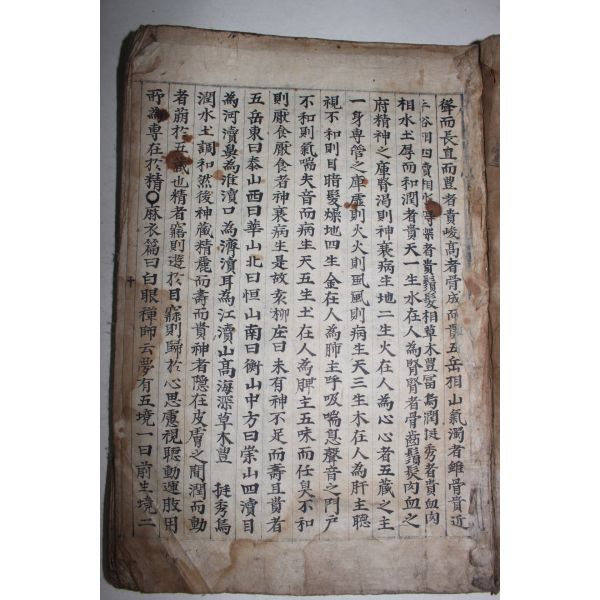 聳而長直而豊者貴峻高者骨成而豊五岳相山氣濁者雖骨貴近
谷相四瀆相水得深者貴鬚髮相草木豊富烏潤挺秀者貴血肉
相水土厚而和潤者貴天一生水在人為腎腎者骨齒鬚髮肉血之
府精神之庫腎渴則神衰病生地二生火在人為心心者五藏之主
一身専管之庫虛則火火則虱虱則病生天三生木在人為肝主聽
視不和則目暗髮燥地四生金在人為肺主呼吸喘息聲音之門戶
不和則氣喘失音而病生天五生土在人為脾主五味而任臭不和
則厭食厭食者神衰病生是故袁柳庄曰未有神不足而壽且貴者
五岳東曰泰山西曰華山北曰恒山南曰衡山中方曰崇山四瀆目
為河瀆鼻為淮瀆口為濟瀆耳為江瀆山高海深草木豊 挺秀烏
潤水土調和然後神藏精麗而壽而貴神者隱在皮膚之間潤而動
者萠於五藏也精者寤則遊於目寐則歸於心思慮視聽動運敗用
所為専在於精〇麻衣篇曰白眼禅師云夢有五境一曰前生境二